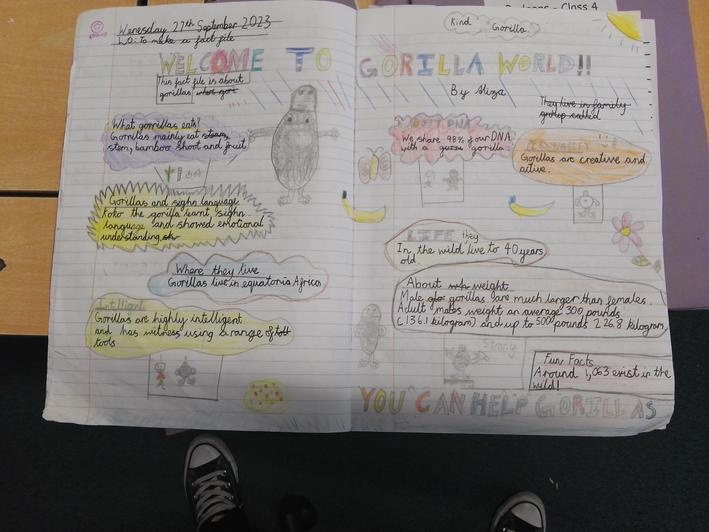 Wenesday 27th September 2023
LO: To make a fact file
WELCOME TO
This fact file is about
gorillas
What gorrillas eats!
Gorrillas mainly eat steam,
stem, bamboo shoot and fruit
Gorillas and sighn language
Koko the gorilla learnt sighn
language and showed emotional
understanding
Where they live
Gorillas live in equatoria Africa
Intelligent
Gorillas are highly intelligent
and has witness using a range of
tools.
Class 4
Kind Gorilla
GORILLA WORLD!!
By Aliza
They live in family
group called
We share 98% of our DNA
with a gorilla
Gorillas are creative and
active.
LIFE
they
In the wild live to 40 years
old
About weight
Male gorillas are much larger than females.
Adult males weight an average 300 pounds
(136.1 kilogram) and up to 500 pounds 226.8 kilogram
strong
Fun Facts
Around 1,063 exist in the
wild!
YOU CAN HELP GORILLAS